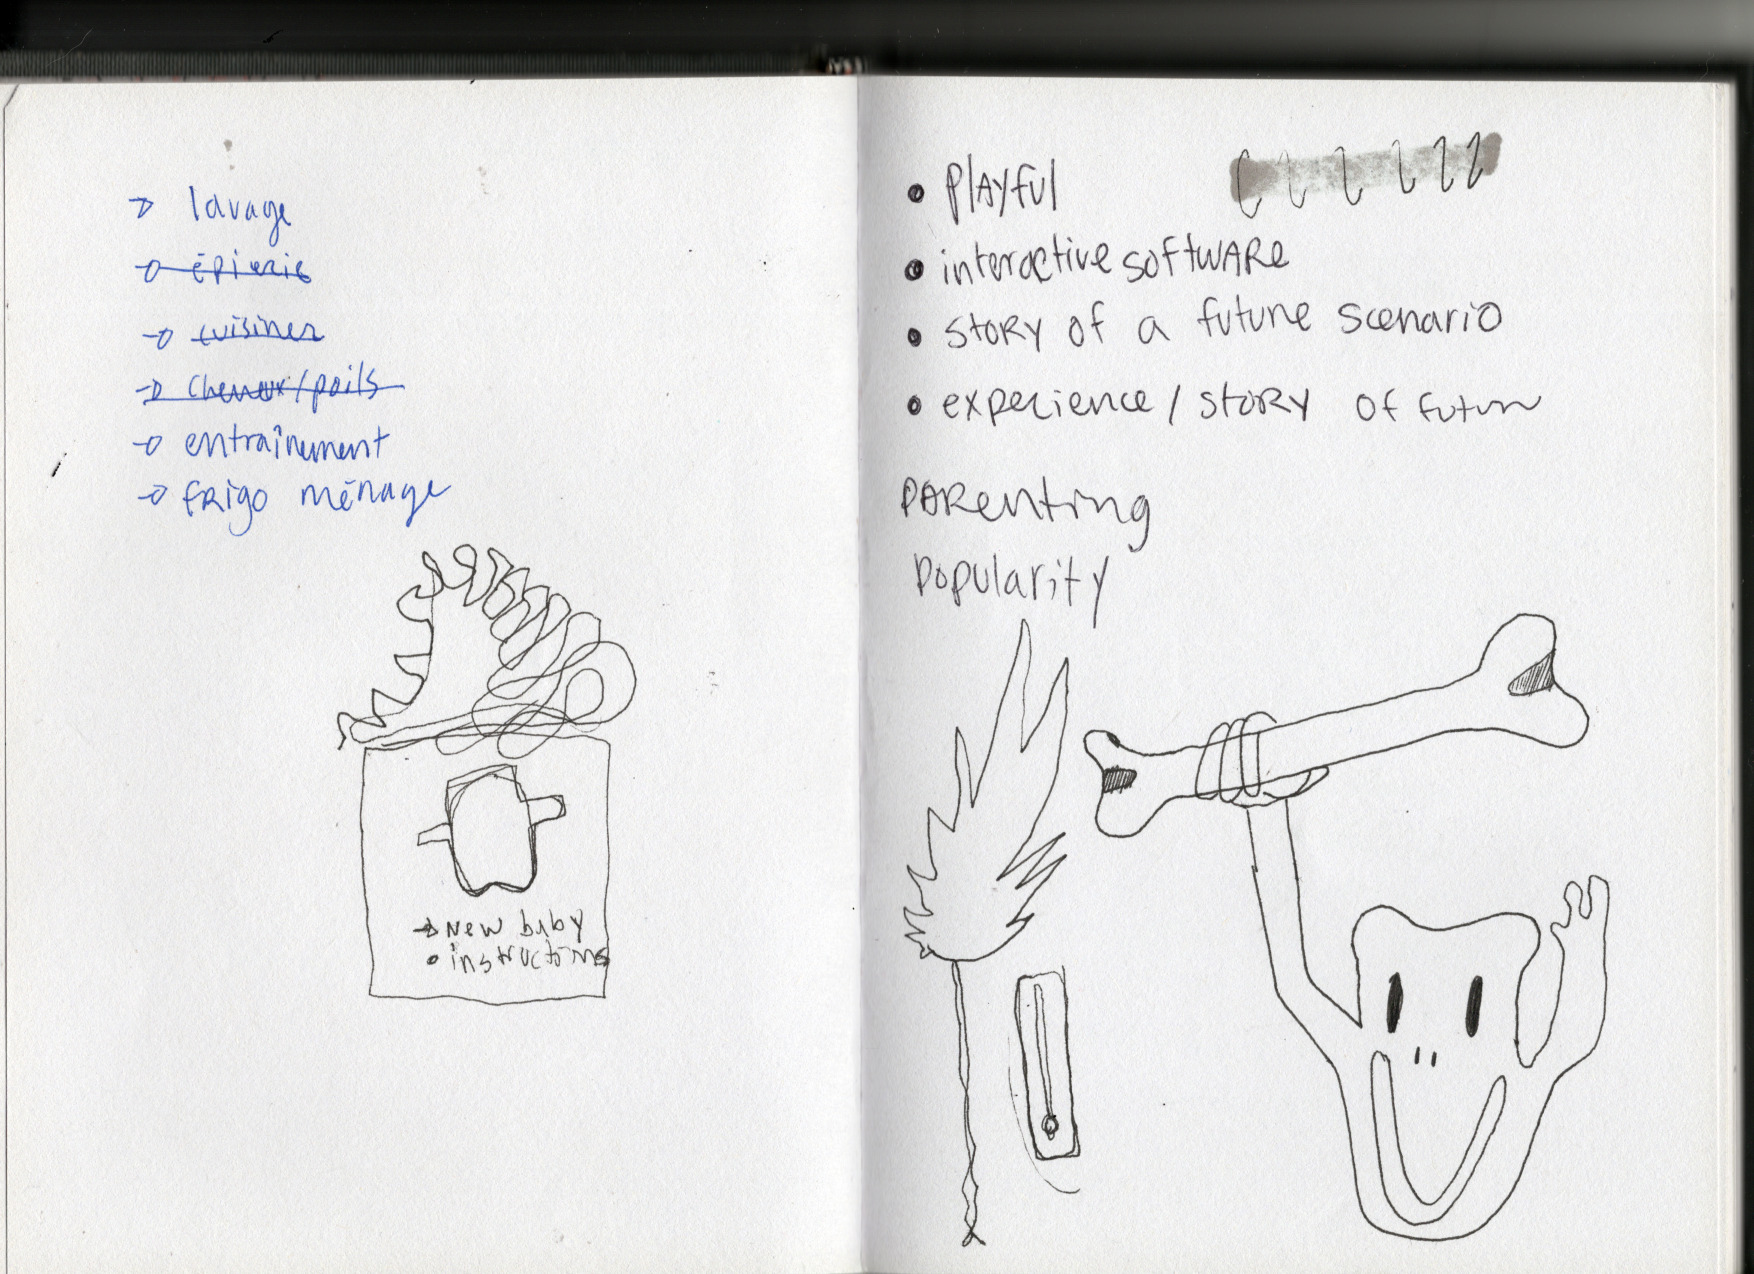 lavage
épicerie
cuisiner
cheveux/poils
entraînement
frigo ménage
New baby
instructions
PlAyful
interactive softWARe
stoRy of a future scenario
experience / stoRy of futur
PARenting
popularity